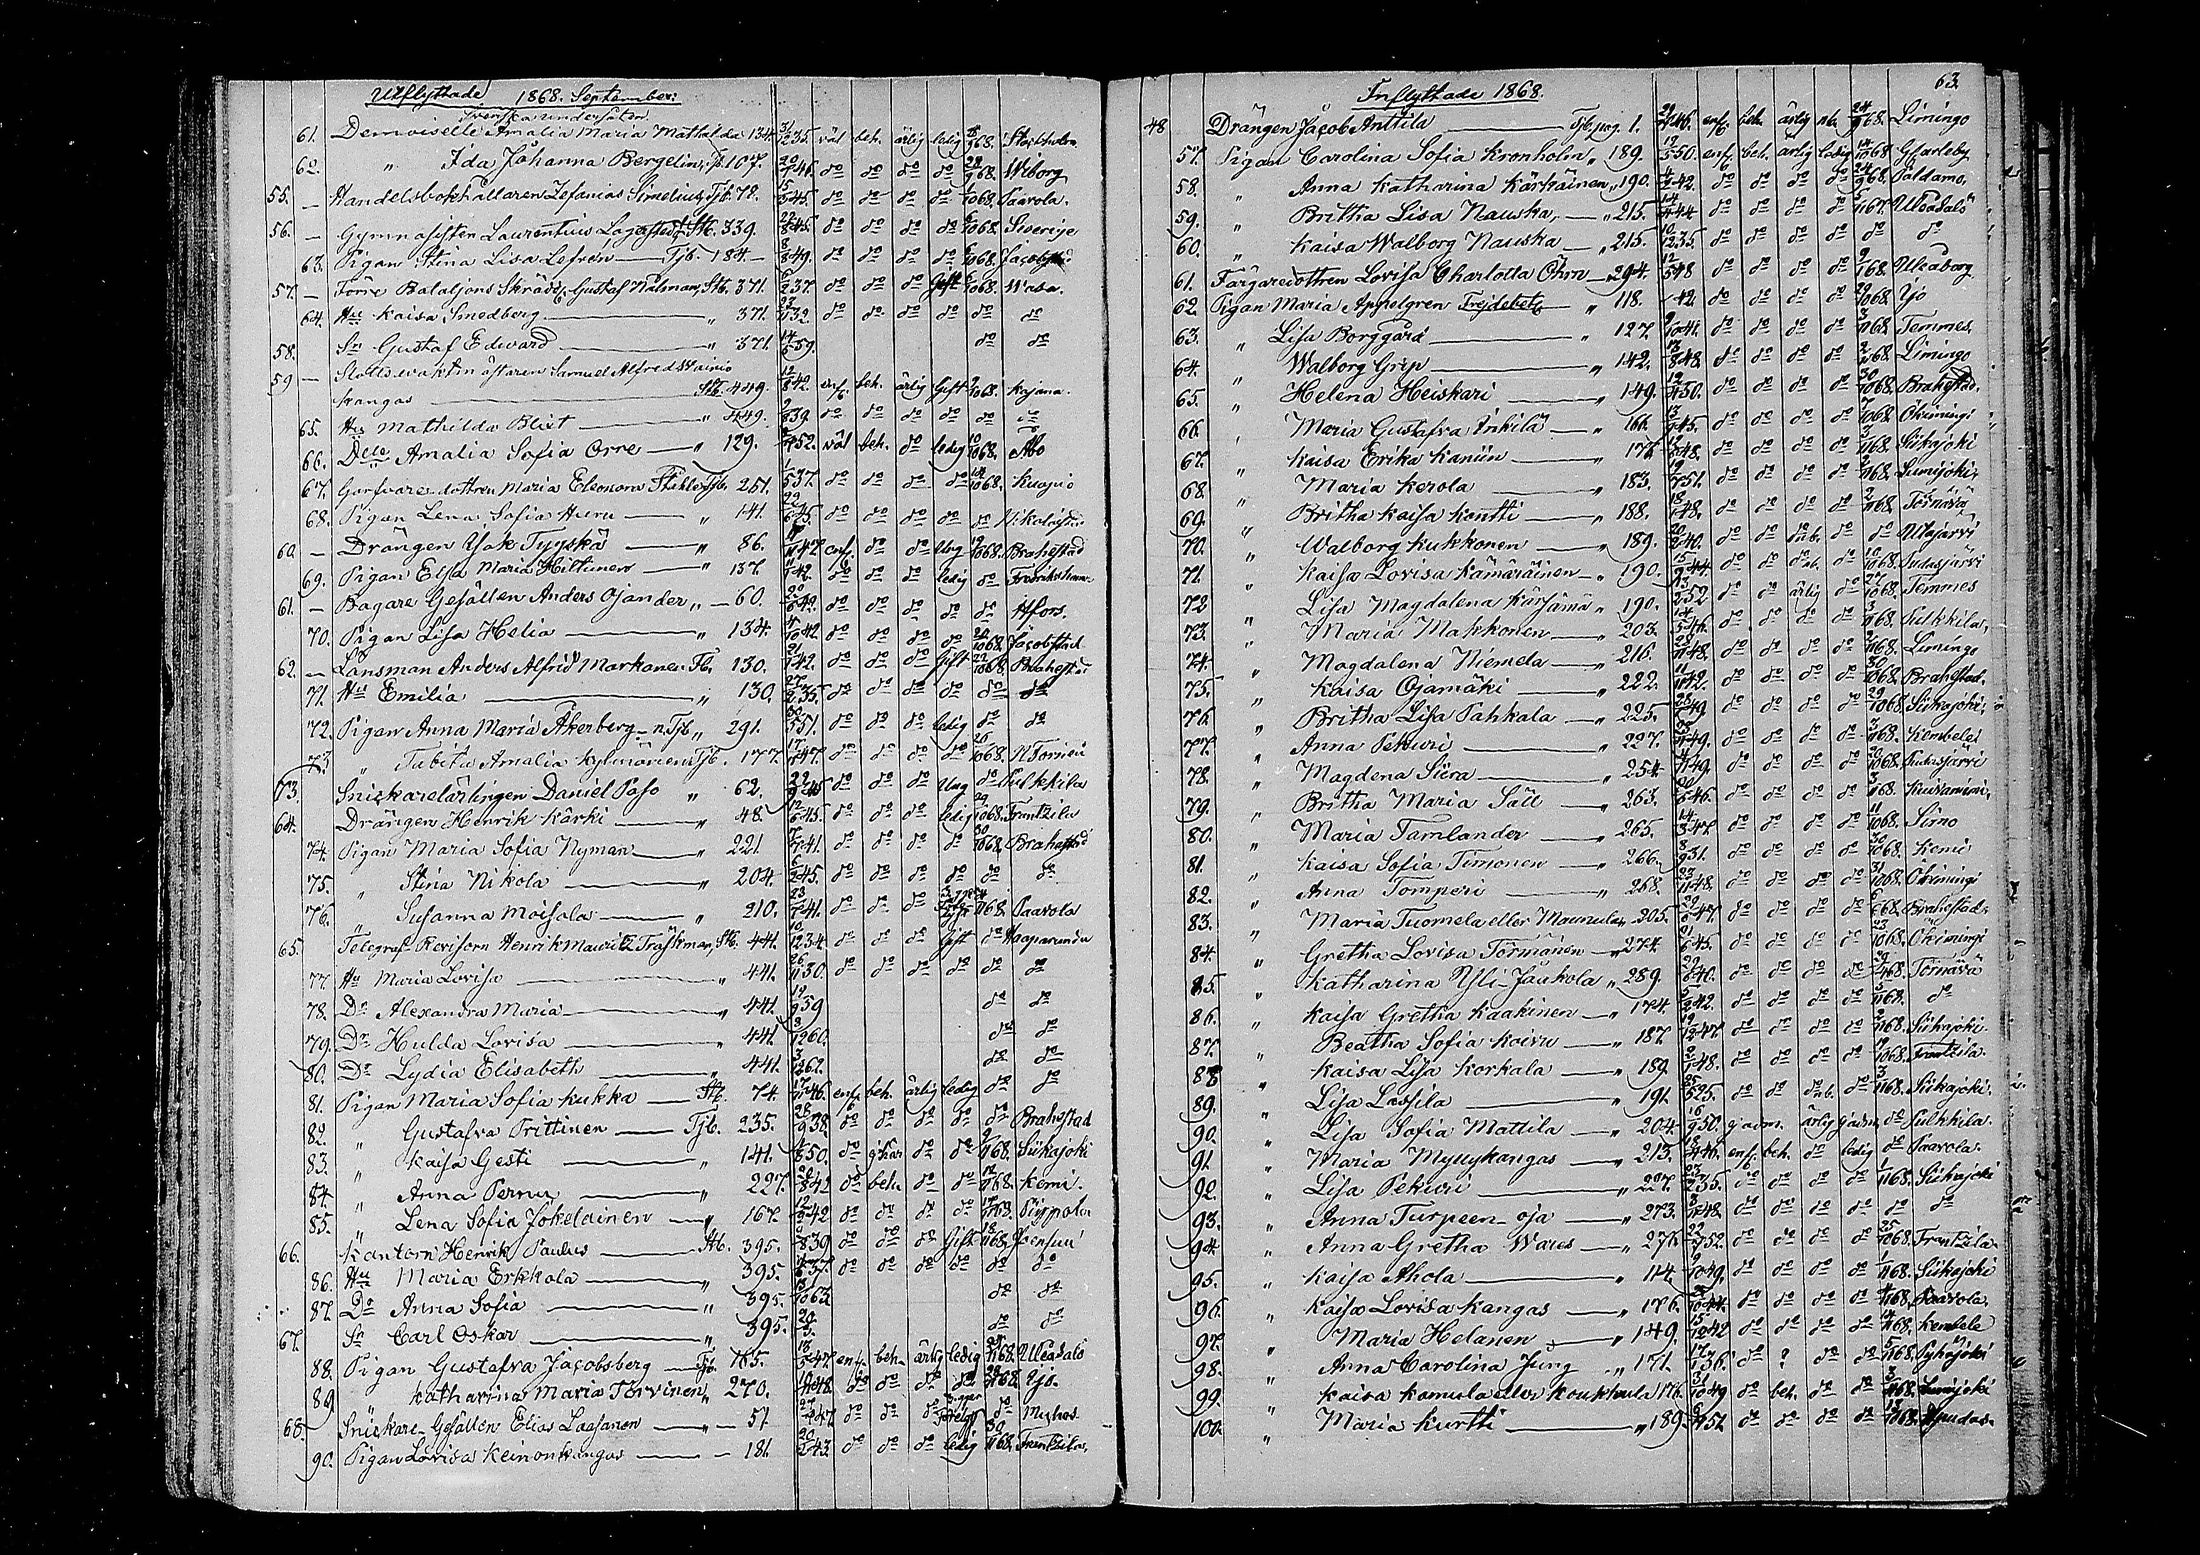 Utflyttade 1868. September:
Svenska undersåten
61. Demoiselle Amalia Maria Mathalda 134. 235. väl beh. ärlig ledig 968. Stockholm
62. " Ida Johanna Bergelin, Tjb. 107. 746. do do do do 968. Wiborg
55. — Handelsbokhållaren Zefanias Simelius, Tjb. 72. 345. do do do do 1068. Paavola.
56. — Gymnasisten Laurentius Lagerstedt Stb. 339. 845. do do do do 1068. Sverige
63. Pigan Stina Lisa Lefrén — Tjb. 184. 849. do do do do 1068. Jacobstad
57. — Förre Bataljons Skrädd. Gustaf Nålman, Stb. 371. 237. do do do Gift 1068. Wasa.
64. Hu Kaisa Smedberg — " 371. 132. do do do do do do
58. Sn Gustaf Edward — " 371. 559. do do
59 — Slottsvaktmästaren Samuel Alfred Wainio
Kangas — Stb. 449. 842. enf. beh. ärlig Gift 1068. Kajana.
65. Hu Mathilda Blixt — " 449. 939. do do do do do do
66. Dlle Amalia Sofia Orre — " 129. 752. väl beh. do ledig 1068. Åbo
67. Garfvare dottren Maria Eleonora Tjb. 251. 537. do do do do 1068. Kuopio
68. Pigan Lena Sofia Huru — " 141. 645. do do do do do Nikolajstad
60. — Drängen Isak Tyyskä — " 86. 1147 enf. do do Ung 1068. Brahestad
69. Pigan Elsa Maria Hiltunen — " 137. 142. do do do ledig do Fredrikshamn
61. — Bagare Gesällen Anders Ojander " — 60. 642. do do do do do Hfors.
70. Pigan Lisa Helia — " 134. 1042. do do do do 1068. Jacobstad
62. — Länsman Anders Alfrid Markanen Fb. 130. 742. do do do Gift 1068. Brahestad
71. Hu Emilia — " 130. 235. do do do do do do
72. Pigan Anna Maria Åkerberg — n. Tjb " 291. 551. do do do ledig do do
73. " Tabita Amalia Kylmänen Tjb. 177. 747. do do do do 1068. N Torneå
73. Snickarelärlingen Daniel Paso " 62. 945 do do do Ung do Pulkkila
64. Drängen Henrik Kärki — " 48. 645. do do do ledig 1068. Frantzila
74. Pigan Maria Sofia Nyman — " 221 741. do do do do 1068. Brahestad
75. " Stina Nikola — " 204. 245. do do do do do do
76. " Susanna Moisala — " 210. 741. do do do 1168. Paavola
65. Telegraf Revisorn Henrik Mauritz Träskman, Stb. 441. 1234. do do do Gift do Haaparanda
77. Hu Maria Lovisa — " 441. 1130. do do do do do do
78. Dr Alexandra Maria — " 441. 959 do do
79. Dr Hulda Lovisa — " 441. 1260. do do
80. Dr Lydia Elisabeth — " 441. 262. do do
81. Pigan Maria Sofia Kukka — Stb. 74. 1146. enf. beh. ärlig ledig do do
82. " Gustafva Prittinen — Tjb. 235. 938. do do do do do Brahestad
83. " Kaisa Gesti — " 141. 850. do do do 1168. Siikajoki
84. " Anna Pernu — " 227. 842 do beh. do do 1168. Kemi.
85. " Lena Sofia Jokelainen — " 167. 242 do do do do 1168. Piippola
66. Kantorn Henrik Paulus — Stb. 395. 839. do do do Gift 1168. Joensuu
86. Hu Maria Erkkola — " 395. 637. do do do do do do
87. Dr Anna Sofia — " 395. 1063. do do
67. Sn Carl Oskar — " 395. do do
88. Pigan Gustafva Jacobsberg — Tjb. 165. 547. enf. beh. ärlig ledig 1168. Uleåsalo
89. " Katharina Maria Törvinen " 270. 448. do do do do 1168. Ijo.
68. Snickare Gesällen Elias Laasanen " — 57 847 do do do do Muhos
90. Pigan Lovisa Keinonkangas — — 181. 243. do do do ledig 1168. Frantzila.
63.
Inflyttade 1868.
48 Drängen Jacob Anttila — Tjb. pag. 1. 746. enf. beh. ärlig 968. Limingo
57. Pigan Carolina Sofia Kronholm " 189. 550. enf. beh. ärlig ledig 1068 Gcarleby
58. " Anna Katharina Kärkäinen " 190. 242. do do do do 968. Paldamo.
59. " Britha Lisa Nauska, — " 215. 444 do do do do 1167. Uleåsalo
60. " Kaisa Walborg Nauska — " 215. 1235. do do do do do do
61. Färgaredottren Lovisa Charlotta Öhrn " 294. 548 do do do do 168. Uleåborg
62. Pigan Maria Appelgren — " 118. 42. do do do do 1068. Ijo
63. " Lisa Borggård — " 127. 1041. do do do do 1168. Temmes
64. " Walborg Grip — " 142. 848. do do do do 1168. Limingo
65. " Helena Heiskari — " 149. 450. do do do do 1068. Brahestad.
66. " Maria Gustafva Inkilä — " 166. 945. do do do do 1068. Okimingi
67. " Kaisa Erika Kaniin — " 176 248. do do do do 1168. Siikajoki
68. " Maria Kerola — " 183. 751. do do do do 1168. Lumijoki.
69. " Britha Kaisa Kontti — " 188. 148. do do do do 1168. Törnävä
70. " Walborg Kukkonen — " 189. 240. do do do do Utajärvi
71. " Kaisa Lovisa Kämäräinen — " 190. 944 do do do do 1068. Pudasjärvi
72 " Lisa Magdalena Kärsämä " 190. 252 do do ärlig do 1068. Temmes
73. " Maria Makkonen — " 203. 546. do do do do 1168. Pulkkila.
74. " Magdalena Niemela — " 216. 1148. do do do do 1168. Limingo
75. " Kaisa Ojamäki — " 222. 1142. do do do do 1068. Brahestad.
76. " Britha Lisa Pahkala — " 225. 749. do do do do 1068. Siikajoki.
77. " Anna Pekuri — " 227. 1149. do do do do 1168. Kembele
78. " Magdena Siira — " 254. 749. do do do do 1068. Pudasjärvi
79. " Britha Maria Säll — " 263. 546. do do do do 168. Kuusamimi.
80. " Maria Tamlander — " 265. 347. do do do do 1068. Simo
81. " Kaisa Sofia Timonen — " 266. 931. do do do do 1068. Kemi
82. " Anna Tomperi — " 268. 1148. do do do do 1068. Okimingi
83. " Maria Tuomela eller Maunula " 305. 647. do do do do 668. Brahestad.
84. " Gretha Lovisa Törmänen — " 274. 645. do do do do 1068. Okimingi
85. " Katharina Yli-Jaukola " 289. 640. do do do do 468. Törnävä
86. " Kaisa Gretha Kaakinen — " 174. 942. do do do do 1167. do
87. " Beatha Sofia Koivu — " 187. 1247. do do do do 1168. Siikajoki.
88 " Kaisa Lisa Korkala — " 189. 148. do do do do 1068. Frantzila.
89. " Lisa Lassila — " 191. 525. do do do do 1168. Siikajoki.
90. " Lisa Sofia Mattila — " 204. 950. ärlig do Pulkkila.
91 " Maria Myllykangas — " 213. 446. enf. beh. do ledig do Paavola.
92. " Lisa Pekuri — " 227. 235. do do do do 1168. Siikajoki
93. " Anna Turpeen-oja — " 273. 1248. do do do do do do
94. " Anna Gretha Wares — " 276. 752. do do do do 1068. Frantzila.
95. " Kaisa Ahola — " 114. 1049. do do do do 1168. Siikajoki
96. " Kaisa Lovisa Kangas — " 176. 1044. do do do do 1168. Paavola.
97. " Maria Helanen — " 149. 1242 do do do do 1168. Kembele
98. " Anna Carolina Jung " 171. 136. do ? do do 1168. Pyhäjoki
99. " Kaisa Kamula eller Koukkula 176. 1049 do beh. do do 1168. Lumijoki
100. " Maria Kurtti — " 189. 951. do do do do 1068. Pudas.